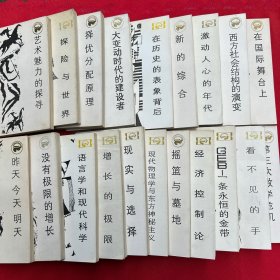 艺术魅力的探寻
探险与世界
择优分配原理
大变动时代的建设者
在历史的表象背后
新的综合
激动人心的年代
西方社会结构的演变
在国际舞台上
昨天今天明天
没有极限的增长
语言学和现代科学
增长的极限
现实与选择
现代物理学与东方神秘主义
摇篮与墓地
经济控制论
GEB——一条永恒的金带
看不见的手
第三次数学危机